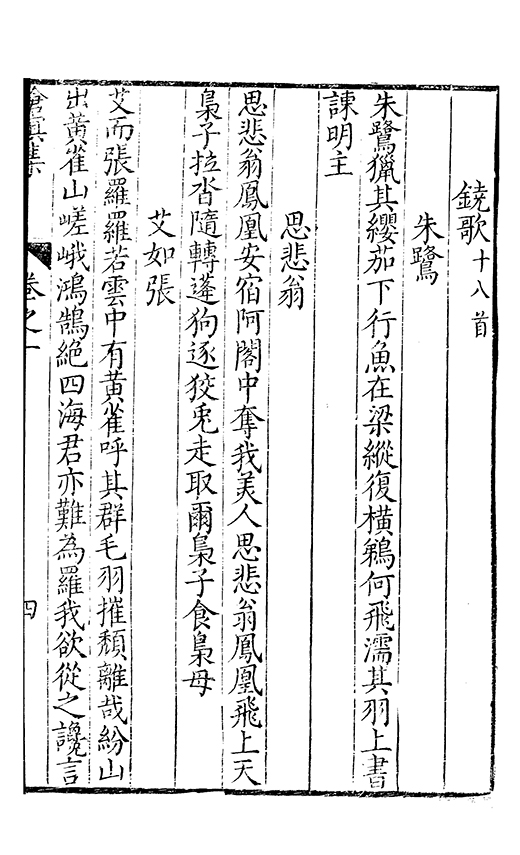 鐃歌十八首
朱鷺
朱鷺獵其纓茄下行魚在梁縱復橫鵜何飛濡其羽上書
諫明主
思悲翁
思悲翁鳳凰安宿阿閣中奪我美人思悲翁鳳凰飛上天
梟子拉沓隨轉蓬狗逐狡兎走取爾梟子食梟母
艾如張
艾而張羅羅若雲中有黃雀呼其群毛羽摧頽離哉紛山
出黃雀山嵯峨鴻鵠絕四海君亦難為羅我欲從之讒言
滄溟集
卷之一
四